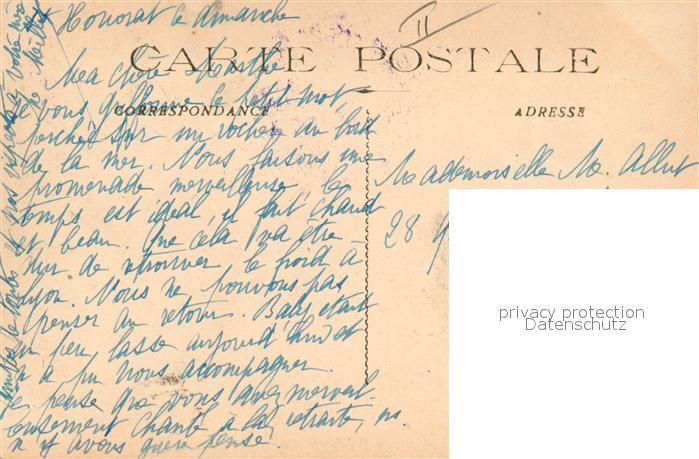 Honorat le dimanche
II
CARTE POSTALE
Ma chère
Je vous griffonne le petit mot,
CORRESPONDANCE
ADRESSE
perchée sur un rocher au bord
de la mer. Nous faisons une
promenade merveilleuse, le
temps est idéal, il fait chaud
et beau. Que cela va être
dur de retrouver le froid à
Lyon. Nous ne pouvons pas
penser au retour. Baby était
un peu lasse aujourd'hui et
n'a pu nous accompagner.
Je pense que vous avez merveil-
leusement chanté à la retraite,
n'y avons guère pensé.
Mademoiselle M. Allut
28
privacy protection
Datenschutz